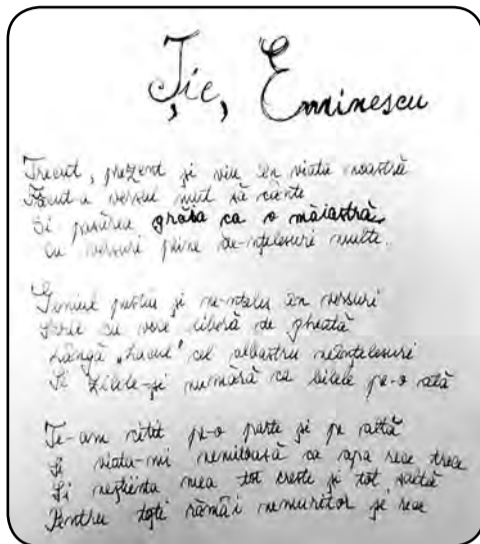 Ție, Eminescu
Trecut, prezent și viu în viata noastră
Făcut-a versul mut să cânte
Si pasărea grăia ca o măiastră,
Cu versuri pline de-nțelesuri multe.
Geniul pustiu și ne-nțeles în versuri
Scrie cu vers liberă de gheată
Lângă „Lacul" cel albastru neînțelesuri
Si zilele-și numără ca bilele pe-o ată
Te-am citit pe-o parte și pe altă
Si viata-mi nemiloasă ca apa rece trece
Si neștiința mea tot creste și tot saltă
Pentru toți rămâi nemuritor și rece